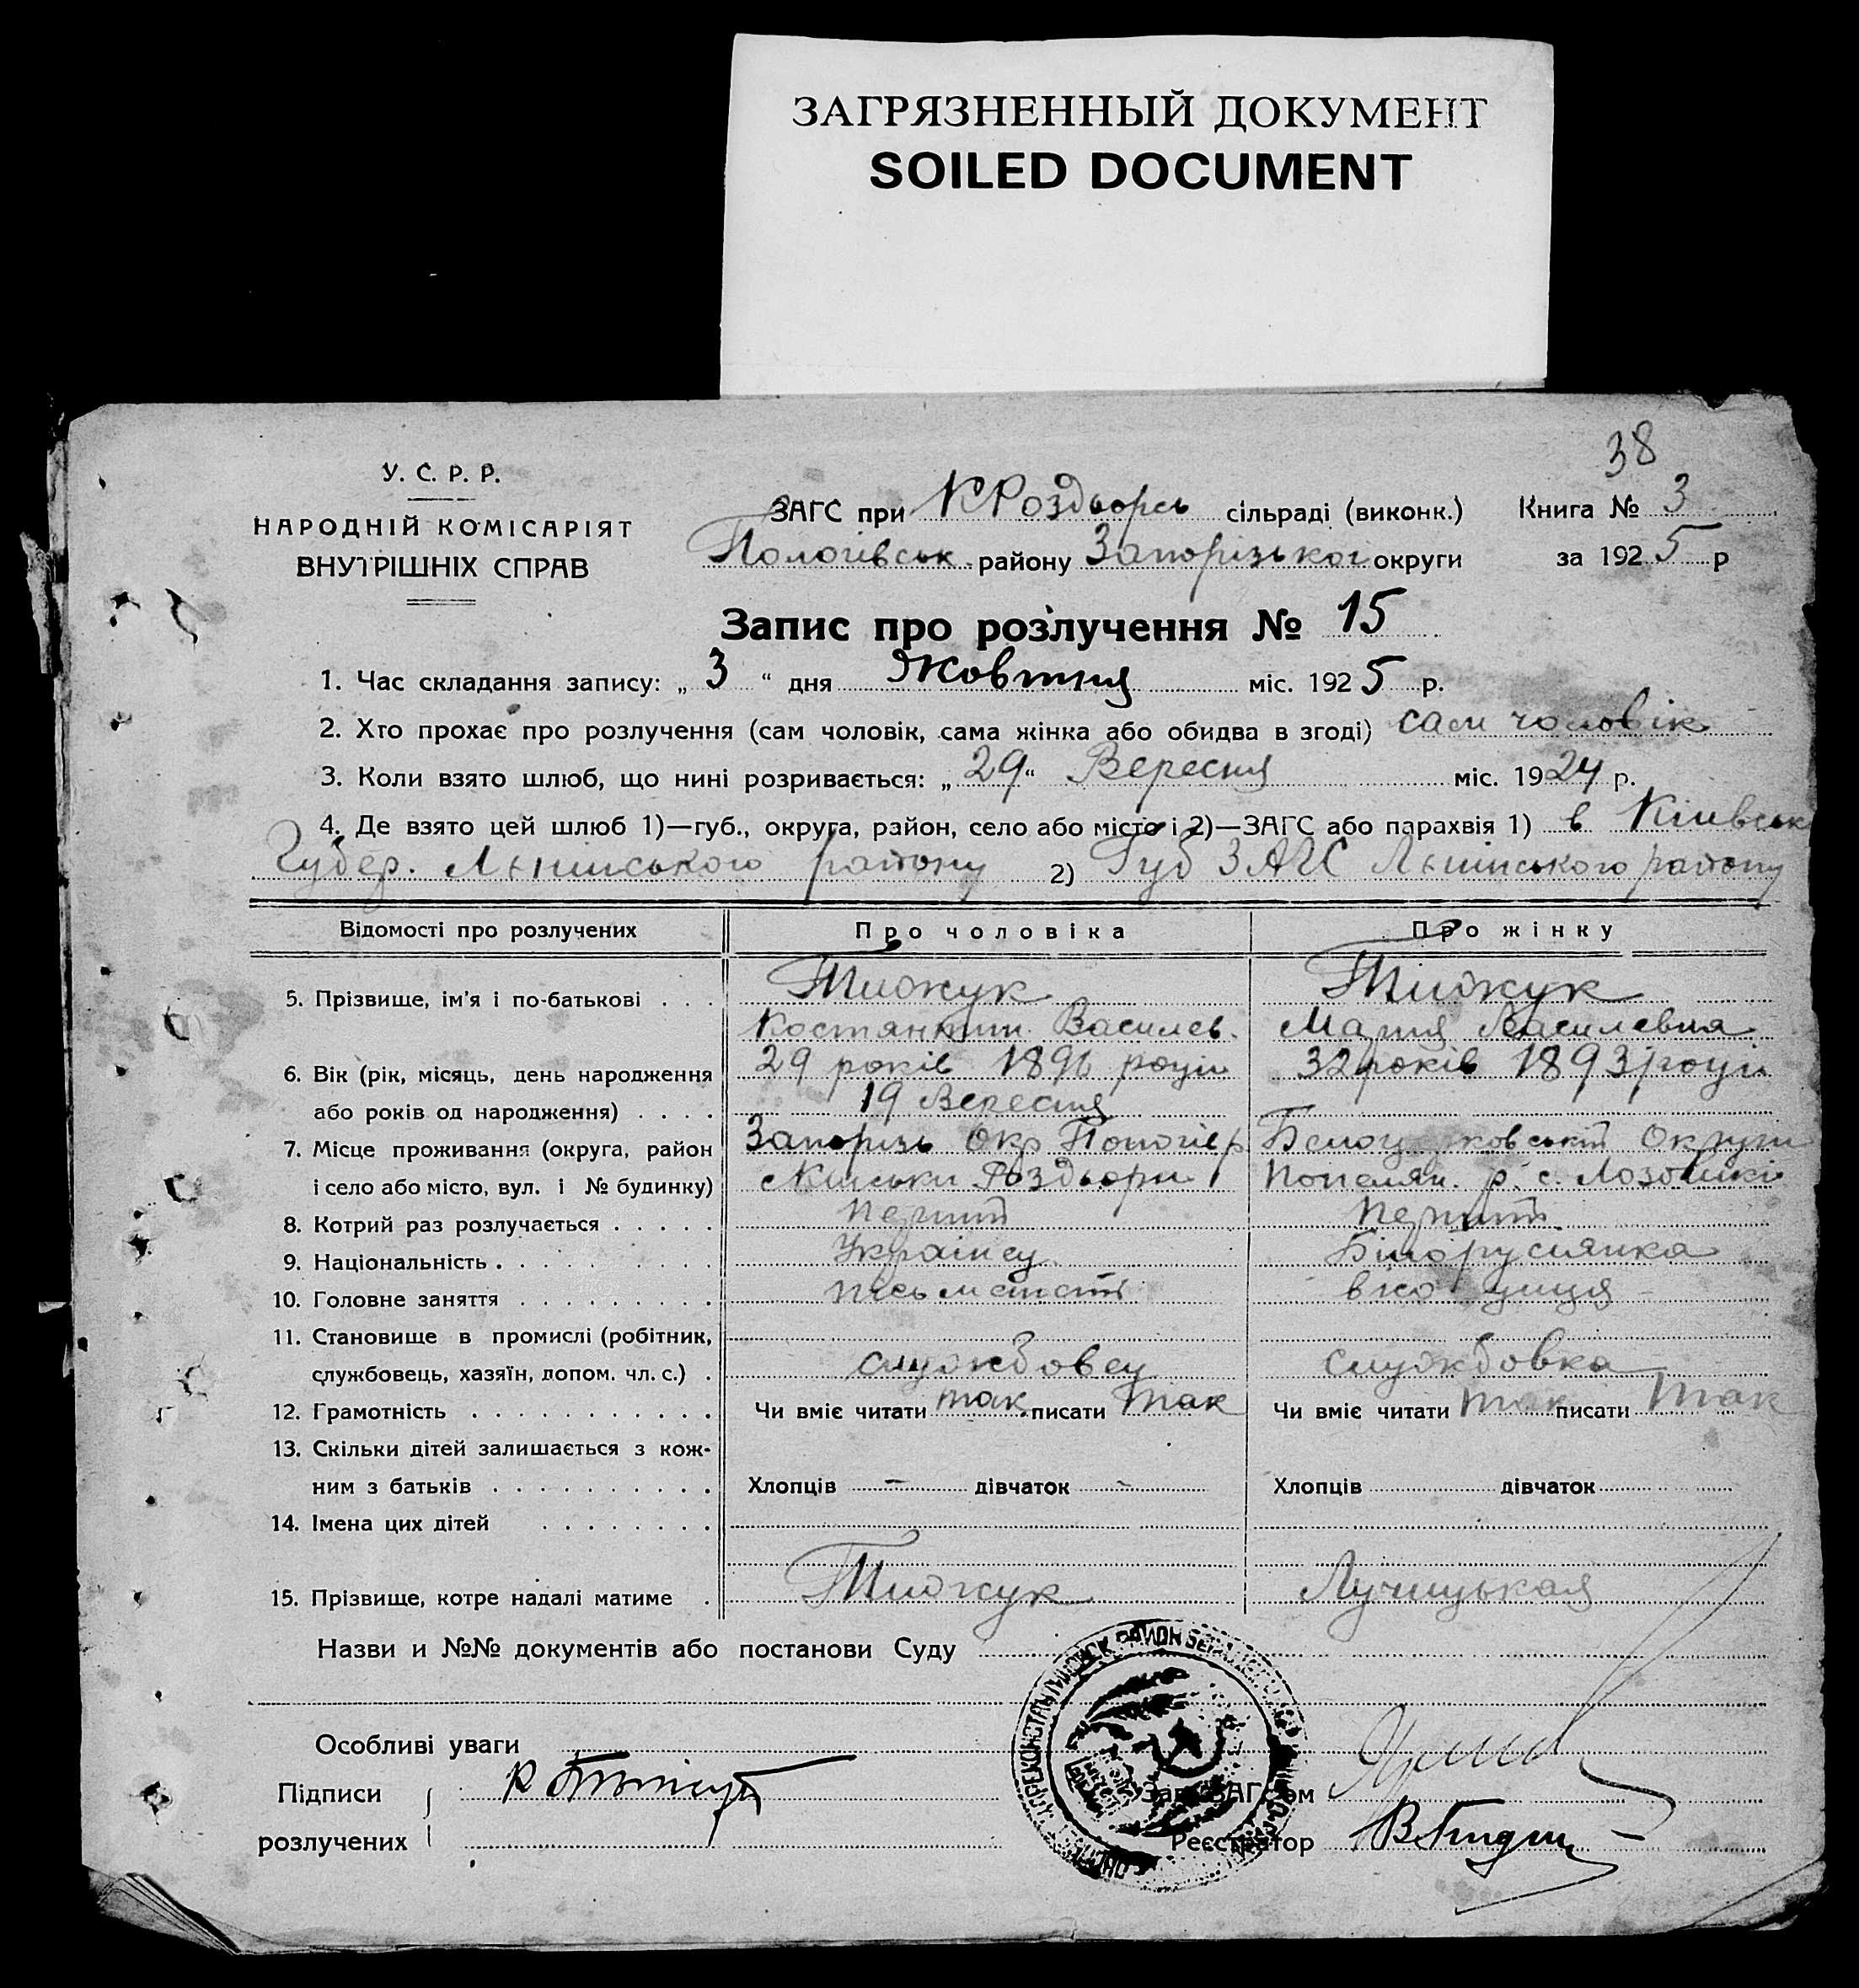 ЗАГРЯЗНЕННЫЙ ДОКУМЕНТ
SOILED DOCUMENT
38
У. С. Р. Р.
НАРОДНІЙ КОМІСАРІЯТ
ВНУТРІШНІХ СПРАВ
ЗАГС при К Роздорсь сільраді (виконк.) Книга № 3
Пологівськ району Запорізької округи за 1925 р
Запис про розлучення № 15
1. Час складання запису: „ 3 “ дня Жовтня міс. 1925 р.
2. Хто прохає про розлучення (сам чоловік, сама жінка або обидва в згоді) сам чоловік
3. Коли взято шлюб, що нині розривається: „ 29 “ Вересня міс. 1924 р.
4. Де взято цей шлюб 1)—губ., округа, район, село або місто і 2)—ЗАГС або парахвія 1) в Київськ
Губер. Ленінського району 2) Губ ЗАГС Ленінського району
Відомості про розлучених Про чоловіка Про жінку
5. Прізвище, ім'я і по-батькові . . . Тиожук Тиожук
Костянтин Василев. Мария Василевна
6. Вік (рік, місяць, день народження 29 років 1896 роціи 32 років 1893 роціи
або років од народження) . . . . 19 Вересня
7. Місце проживання (округа, район Запорізь Окр Пологів р. Округи
і село або місто, вул. і № будинку) Кінськи Роздьори р. с.
8. Котрий раз розлучається . . . . . перший перший
9. Національність . . . . . . . . . Українец Білорусиянка
10. Головне заняття . . . . . . . . .
11. Становище в промислі (робітник,
службовець, хазяїн, допом. чл. с.) . службовец службовка
12. Грамотність . . . . . . . . . . . Чи вміє читати так писати так Чи вміє читати так писати так
13. Скільки дітей залишається з кож-
ним з батьків . . . . . . . . . . Хлопців – дівчаток – Хлопців дівчаток
14. Імена цих дітей . . . . . . . .
15. Прізвище, котре надалі матиме . Тиожук Лучицькая
Назви и №№ документів або постанови Суду
Особливі уваги
Підписи
розлучених
Зав. ЗАГСом
Реєстратор